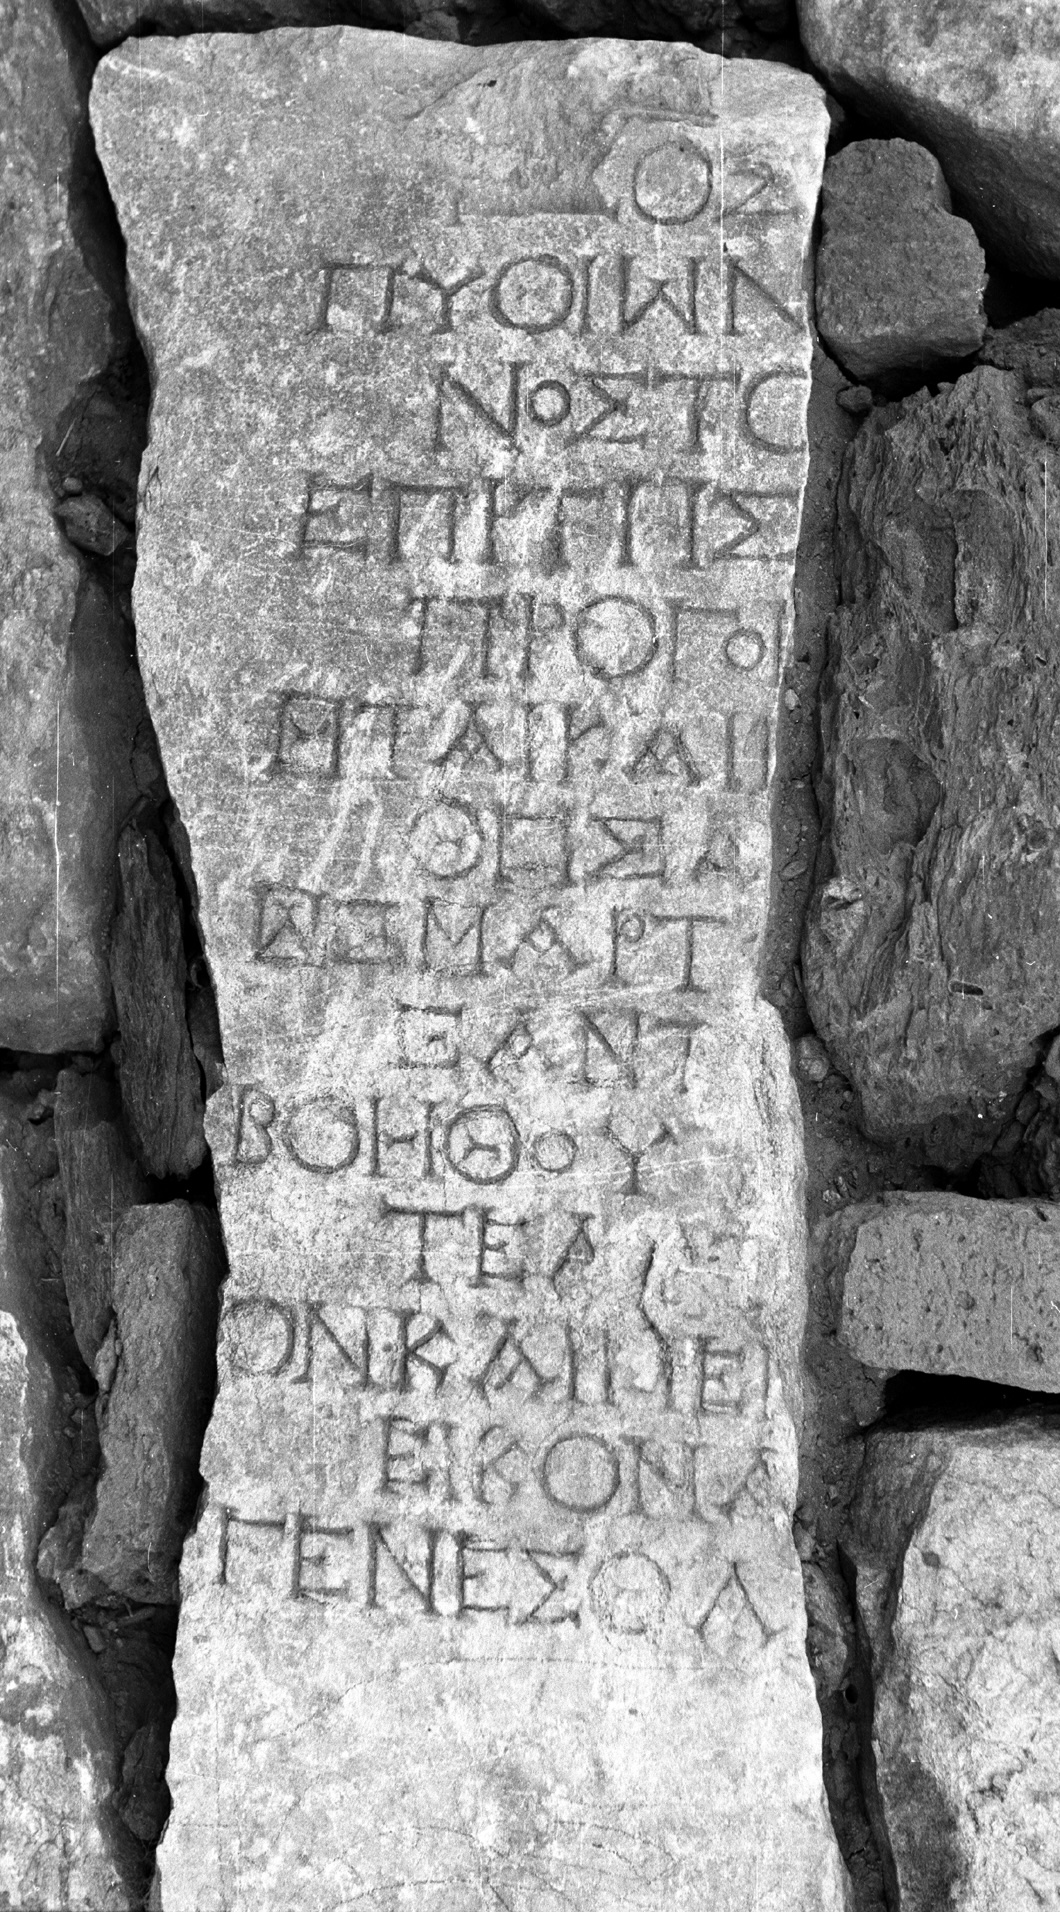 ΟΣ
ΠΥΘΙΩΝ
ΝΟΣΤΟ
ΕΠΚΠΙΣ
ΠΡΟΓΟΙ
ΗΤΑΙΚΑΙ
ΘΗΣΑ
ΞΜΑΡΤ
ΞΑΝΤ
ΒΟΗΘΟΥ
ΤΕΛ
ΟΝΚΑΙ ΕΙ
ΕΙΚΟΝΑ
ΓΕΝΕΣΘΑ